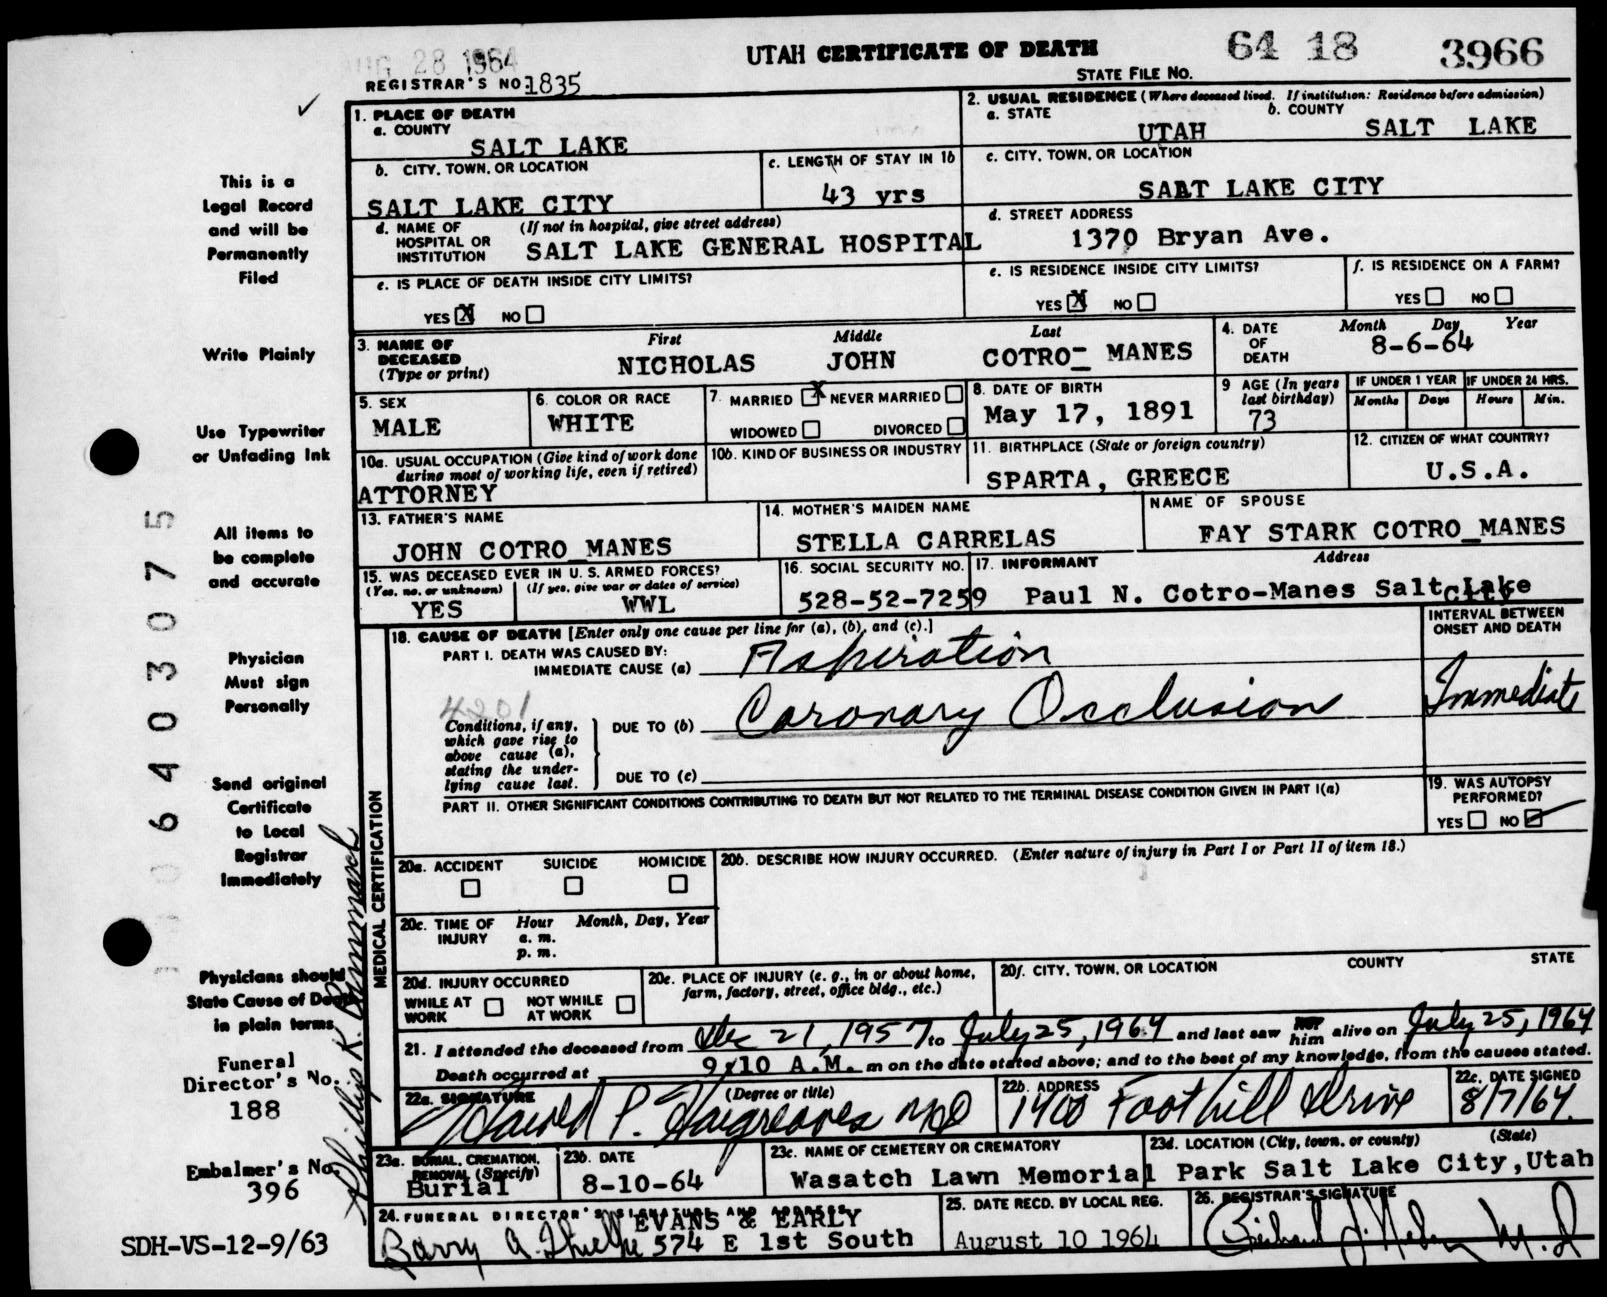 AUG 28 1964
UTAH CERTIFICATE OF DEATH
64 18 3966
REGISTRAR'S NO. 1835
STATE FILE NO.
1. PLACE OF DEATH
a. COUNTY
SALT LAKE
2. USUAL RESIDENCE (Where deceased lived. If institution: Residence before admission)
a. STATE
UTAH
b. COUNTY
SALT LAKE
b. CITY, TOWN, OR LOCATION
SALT LAKE CITY
c. LENGTH OF STAY IN 1b
43 yrs
c. CITY, TOWN, OR LOCATION
SALT LAKE CITY
d. NAME OF HOSPITAL OR INSTITUTION
(If not in hospital, give street address)
SALT LAKE GENERAL HOSPITAL
d. STREET ADDRESS
1370 Bryan Ave.
e. IS PLACE OF DEATH INSIDE CITY LIMITS?
YES X NO
e. IS RESIDENCE INSIDE CITY LIMITS?
YES X NO
f. IS RESIDENCE ON A FARM?
YES NO
3. NAME OF DECEASED
(Type or print)
First Middle Last
NICHOLAS JOHN COTRO- MANES
4. DATE OF DEATH
Month Day Year
8-6-64
5. SEX
MALE
6. COLOR OR RACE
WHITE
7. MARRIED X NEVER MARRIED
WIDOWED DIVORCED
8. DATE OF BIRTH
May 17, 1891
9 AGE (In years last birthday)
73
IF UNDER 1 YEAR
Months Days
IF UNDER 24 HRS.
Hours Min.
10a. USUAL OCCUPATION (Give kind of work done during most of working life, even if retired)
ATTORNEY
10b. KIND OF BUSINESS OR INDUSTRY
11. BIRTHPLACE (State or foreign country)
SPARTA, GREECE
12. CITIZEN OF WHAT COUNTRY?
U.S.A.
13. FATHER'S NAME
JOHN COTRO_MANES
14. MOTHER'S MAIDEN NAME
STELLA CARRELAS
NAME OF SPOUSE
FAY STARK COTRO_MANES
15. WAS DECEASED EVER IN U. S. ARMED FORCES?
(Yes, no, or unknown)
YES
(If yes, give war or dates of service)
WWL
16. SOCIAL SECURITY NO.
528-52-7259
17. INFORMANT Address
Paul N. Cotro-Manes Salt Lake
City
18. CAUSE OF DEATH [Enter only one cause per line for (a), (b), and (c).]
INTERVAL BETWEEN ONSET AND DEATH
PART I. DEATH WAS CAUSED BY:
IMMEDIATE CAUSE (a) Aspiration
4201
Conditions, if any, which gave rise to above cause (a), stating the underlying cause last.
DUE TO (b) Coronary Occlusion Immediate
DUE TO (c)
PART II. OTHER SIGNIFICANT CONDITIONS CONTRIBUTING TO DEATH BUT NOT RELATED TO THE TERMINAL DISEASE CONDITION GIVEN IN PART I(a)
19. WAS AUTOPSY PERFORMED?
YES NO
MEDICAL CERTIFICATION
20a. ACCIDENT SUICIDE HOMICIDE
20b. DESCRIBE HOW INJURY OCCURRED. (Enter nature of injury in Part I or Part II of item 18.)
20c. TIME OF INJURY
Hour Month, Day, Year
a. m.
p. m.
20d. INJURY OCCURRED
WHILE AT WORK NOT WHILE AT WORK
20e. PLACE OF INJURY (e. g., in or about home, farm, factory, street, office bldg., etc.)
20f. CITY, TOWN, OR LOCATION COUNTY STATE
21. I attended the deceased from Dec 21, 1957 to July 25, 1964 and last saw him alive on July 25, 1964
Death occurred at 9:10 A.M. m on the date stated above; and to the best of my knowledge, from the causes stated.
22a. SIGNATURE (Degree or title)
P. Hargreaves MD
22b. ADDRESS
1400 Foothill Drive
22c. DATE SIGNED
8/7/64
23a. BURIAL, CREMATION, REMOVAL (Specify)
Burial
23b. DATE
8-10-64
23c. NAME OF CEMETERY OR CREMATORY
Wasatch Lawn Memorial Park
23d. LOCATION (City, town, or county) (State)
Salt Lake City, Utah
24. FUNERAL DIRECTOR'S SIGNATURE AND ADDRESS
EVANS & EARLY
Barry A. 574 E 1st South
25. DATE RECD. BY LOCAL REG.
August 10 1964
26. REGISTRAR'S SIGNATURE
M.D
This is a
Legal Record
and will be
Permanently
Filed
Write Plainly
Use Typewriter
or Unfading Ink
All items to
be complete
and accurate
Physician
Must sign
Personally
Send original
Certificate
to Local
Registrar
Immediately
Physicians should
State Cause of Death
in plain terms
Funeral
Director's No.
188
Embalmer's No.
396
SDH-VS-12-9/63
Phillip K.
06403075